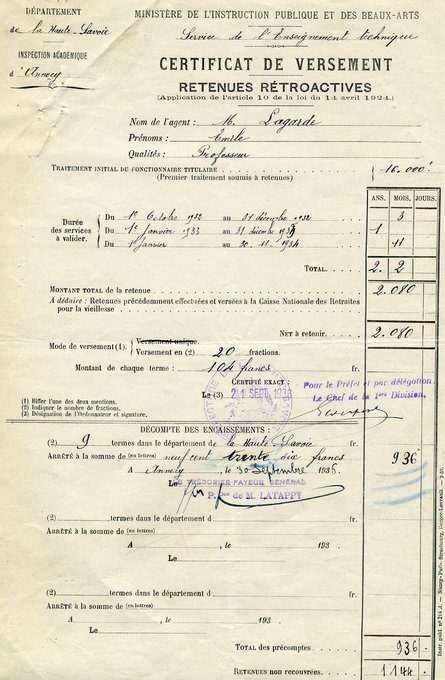 DÉPARTEMENT
de la Haute-Savoie
INSPECTION ACADÉMIQUE
d'Annecy
MINISTÈRE DE L'INSTRUCTION PUBLIQUE ET DES BEAUX-ARTS
Service de l'Enseignement technique
CERTIFICAT DE VERSEMENT
RETENUES RÉTROACTIVES
(Application de l'article 10 de la loi du 14 avril 1924.)
Nom de l'agent : M. Lagarde
Prénoms : Emile
Qualités : Professeur
TRAITEMENT INITIAL DU FONCTIONNAIRE TITULAIRE 16.000
(Premier traitement soumis à retenues)
ANS. MOIS. JOURS.
Durée des services à valider.
Du 1er Octobre 1932 au 31 décembre 1932 3
Du 1er Janvier 1933 au 31 décembre 1933 1
Du 1er janvier au 30-11-1934 11
TOTAL. 2 2
MONTANT TOTAL de la retenue 2.080
A déduire : Retenues précédemment effectuées et versées à la Caisse Nationale des Retraites
pour la vieillesse
NET à retenir. 2.080
Mode de versement (1). Versement unique.
Versement en (2) 20 fractions.
Montant de chaque terme : 104 francs.
CERTIFIÉ EXACT :
Le (3) 21 SEPT. 1936
Pour le Préfet et par délégation
Le Chef de la 1ère Division,
(1) Biffer l'une des deux mentions.
(2) Indiquer le nombre de fractions.
(3) Désignation de l'Ordonnateur et signature.
DÉCOMPTE DES ENCAISSEMENTS :
(2) 9 termes dans le département de la Haute Savoie fr. 936
ARRÊTÉ à la somme de (en lettres) neuf cent trente six francs
A Annecy, le 30 Septembre 1936
LE TRÉSORIER-PAYEUR GÉNÉRAL
P. de M. LATAPPY
(2) termes dans le département d fr.
ARRÊTÉ à la somme de (en lettres)
A , le 193
Le
(2) termes dans le département d fr.
ARRÊTÉ à la somme de (en lettres)
A , le 193
Le
TOTAL des précomptes 936
RETENUES non recouvrées 1144